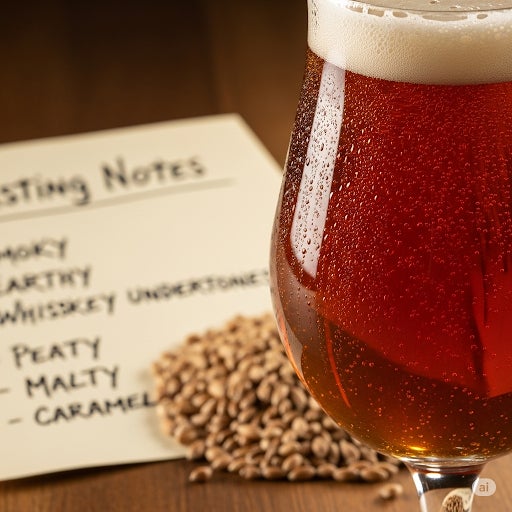 sting Notes
moky
earthy
Whiskey undertones
- Peaty
- Malty
- Caramel
ai